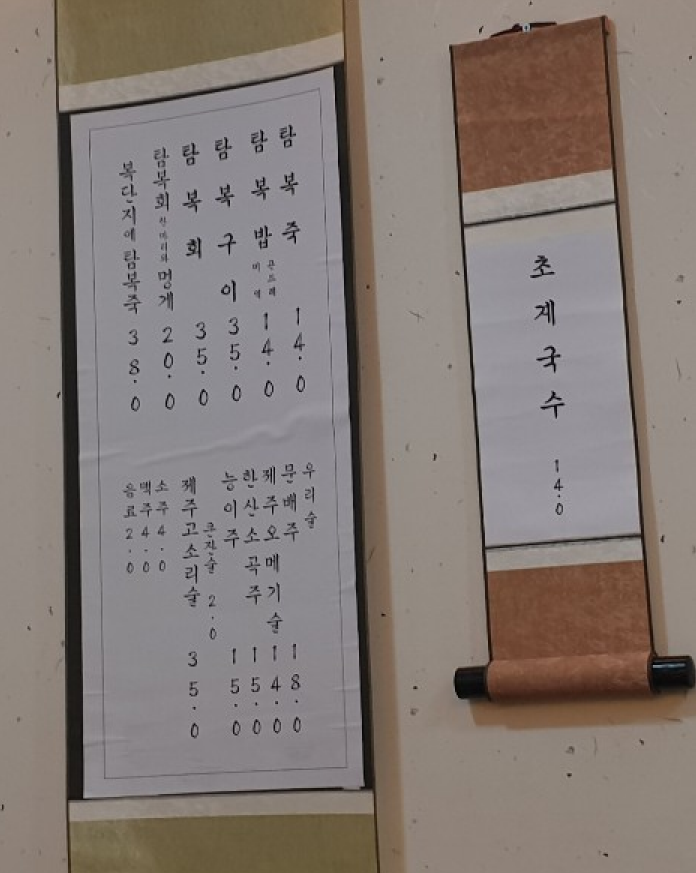 탐복죽 14.0
탐복밥 곤드레 미역 14.0
탐복구이 35.0
탐복회 35.0
탐복회 한마리와 멍게 20.0
복단지에 탐복죽 38.0
우리술
문배주 18.0
제주오메기술 14.0
한산소곡주 15.0
능이주 15.0
큰잔술 2.0
제주고소리술 35.0
소주 4.0
맥주 4.0
음료 2.0
초계국수 14.0